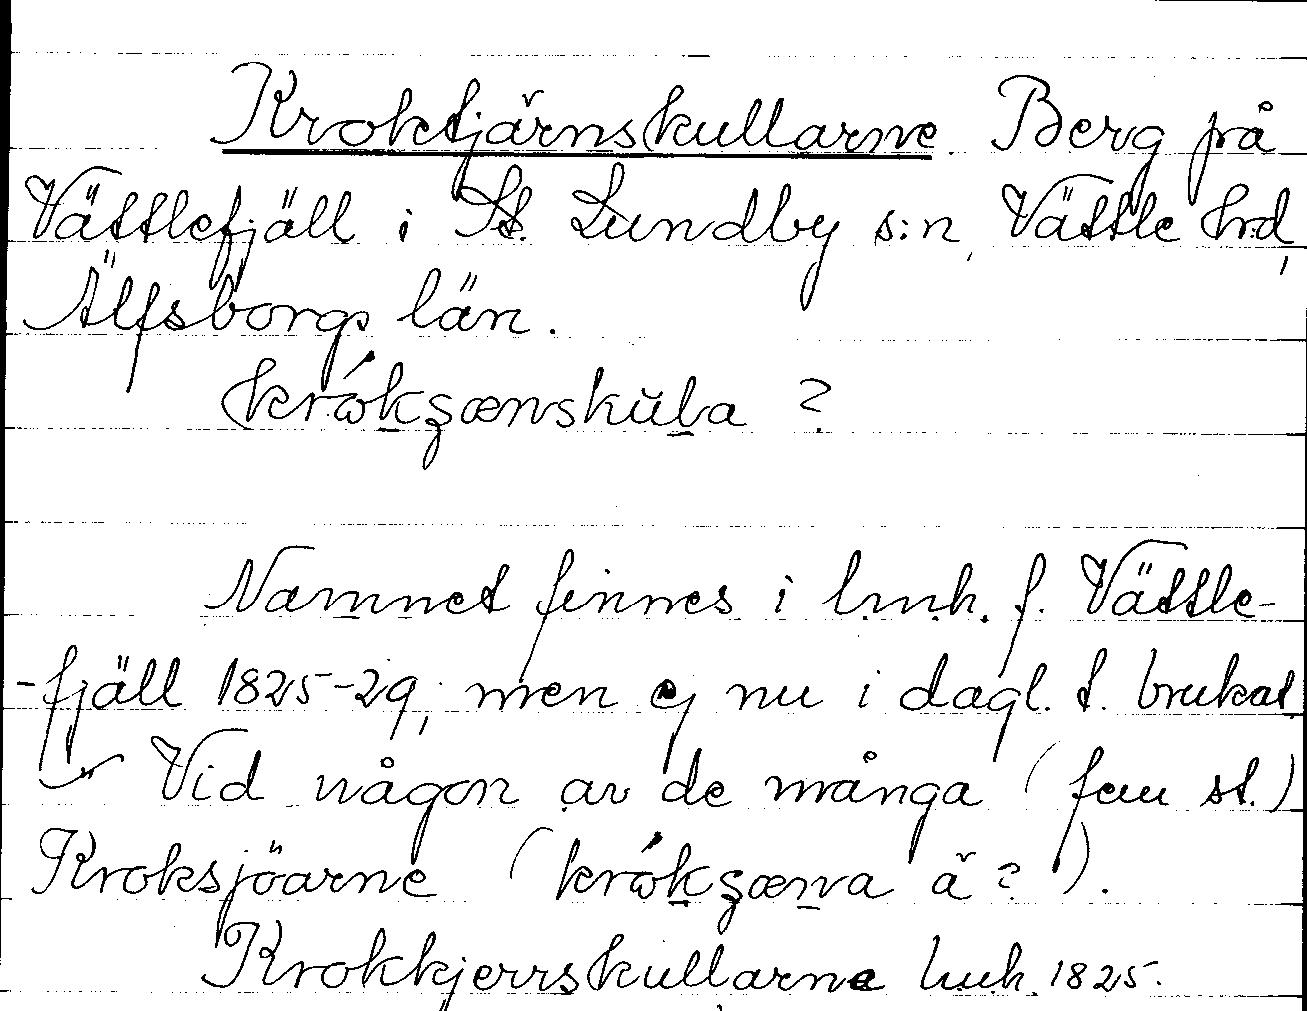 Kroktjärnskullarne Berg på
Vättlefjäll i St. Lundby s:n, Vättle hd,
Älfsborgs län.
?
Namnet finnes i lmh. f. Vättle-
-fjäll 1825-29, men ej nu i dagl. t. brukat
Vid någon av de många (fem st.)
Kroksjöarne ( ä? ).
Krokkjerrskullarne lmh. 1825.